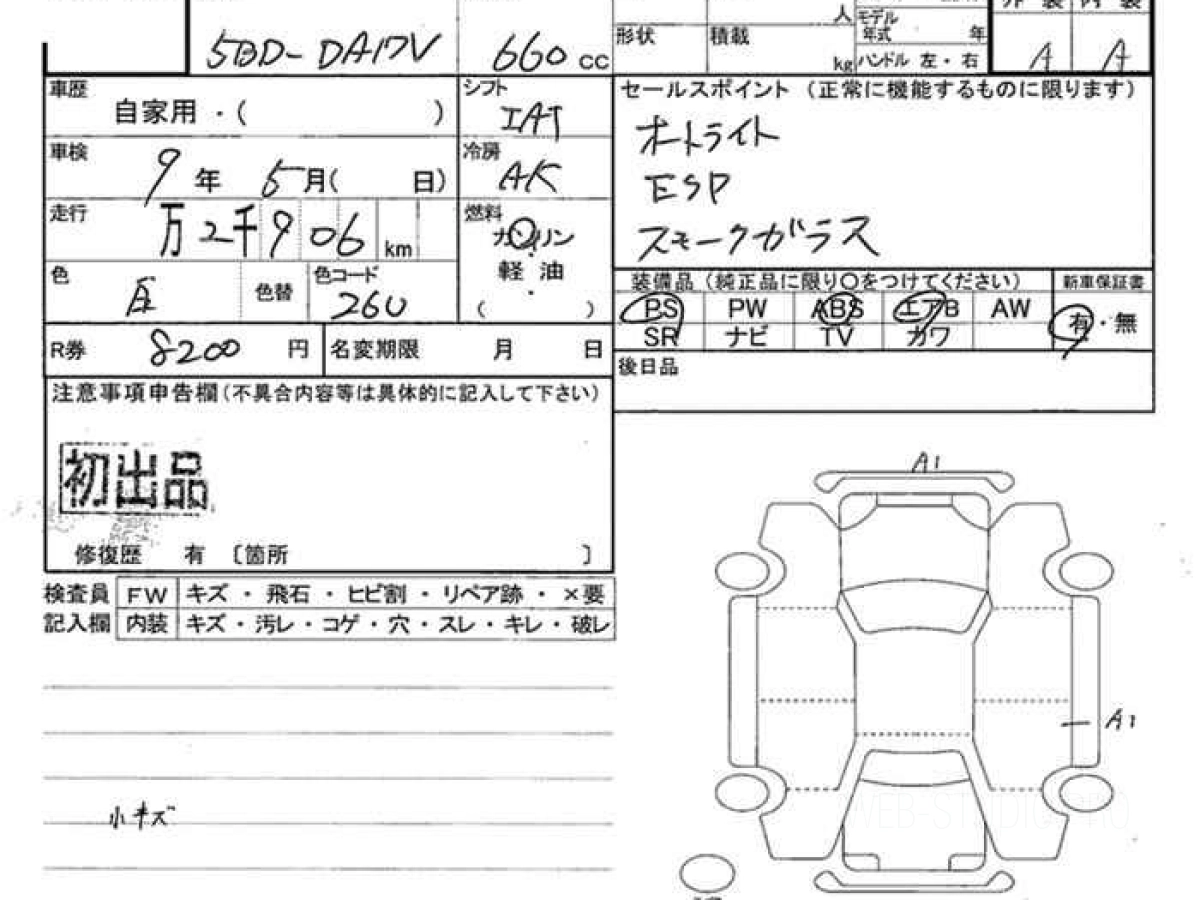 5BD-DA17V 660 cc
人
モデル
年式 年
形状 積載 kg
ハンドル 左・右
外装 内装
A A
車歴 自家用・( )
シフト IAT
セールスポイント（正常に機能するものに限ります）
オートライト
ESP
スモークガラス
車検 9年 5月( 日)
冷房 AC
走行 万2千906 km
燃料 ガソリン
軽油
( )
色 白 色替 色コード 26U
装備品（純正品に限り○をつけてください） 新車保証書
PS PW ABS エアB AW 有・無
SR ナビ TV カワ
R券 8200 円 名変期限 月 日
後日品
注意事項申告欄(不具合内容等は具体的に記入して下さい)
初出品
修復歴 有〔箇所 〕
検査員 FW キズ・飛石・ヒビ割・リペア跡・×要
記入欄 内装 キズ・汚レ・コゲ・穴・スレ・キレ・破レ
A1
A1
小キズ
WEB-STUDIO.PRO